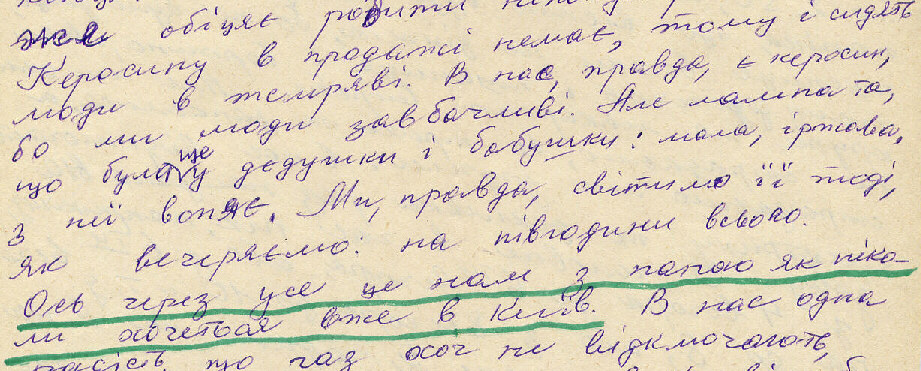 же обіцяє робити
Керосину в продажі немає, тому і сидять
люди в темряві. В нас, правда, є керосин,
бо ми люди завбачливі. Але лампа та,
що була ще у дєдушки і бабушки: мала, іржава,
з неї воняє. Ми, правда, світимо її тоді,
як вечеряємо: на півгодини всього.
Ось через усе це нам з папою як ніко-
ли хочеться вже в Київ. В нас одна
радість, що газ хоч не відключають,